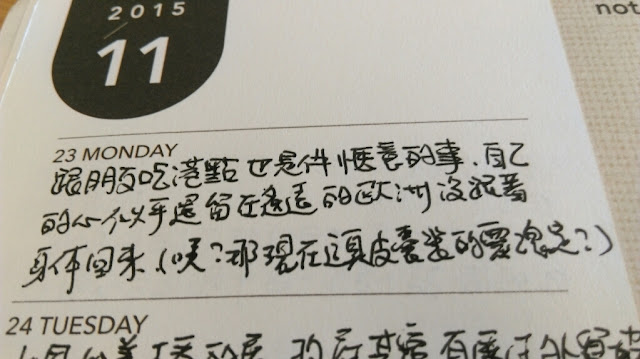 2015
11
not
23 MONDAY
跟朋友吃港點也是件愜意的事,自己
的心似乎還留在遙遠的歐洲沒跟著
身体回來、(咦?那現在這具皮囊裝的靈魂是?)
24 TUESDAY